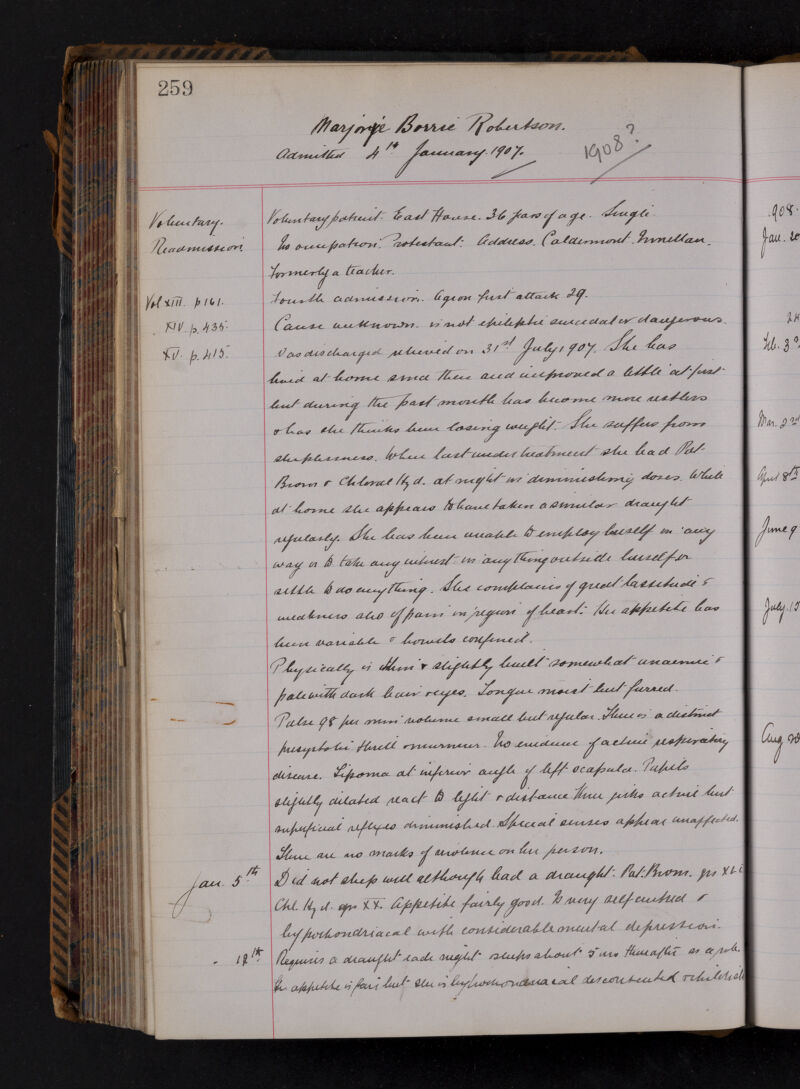 259
Marjorie Borrie Robertson.
Admitted 4th January 1907.
1908?
Voluntary.
Readmission
Vol XIII. p 161.
XIV. p. 435.
XV. p. 415.
Voluntary patient. East House. 36 years of age. Single
No occupation. Protestant. Address. Caldermont. Innellan.
Formerly a teacher.
Fourth admission. Age on first attack 29.
Cause unknown. is not epileptic suicidal or dangerous.
Was discharged relieved on 31st July 1907. She has
lived at home since then and improved a little at first
but during the past month has become more restless
& has she thinks been losing weight. She suffers from
sleeplessness. When last under treatment she had Pot.
Brom & Chloral Hyd. at night in diminishing doses. While
at home she appears to have taken a similar draught
regularly. She has been unable to employ herself in any
way or to take any interest in anything outside herself or
settle to do anything. She complains of great lassitude &
weakness also of pain in region of heart. Her appetite has
been variable & bowels confined.
Physically is thin & slightly built somewhat anaemic &
pale with dark hair & eyes. Tongue moist but furred.
Pulse 98 per min volume small but regular. There is a distinct
presystolic thrill & murmur. No evidence of active respiratory
disease. Lipoma at inferior angle of left scapula. Pupils
slightly dilated react to light & distance. Knee jerks active but
superficial reflexes diminished. Special senses appear unaffected.
There are no marks of violence on her person.
Jan. 5th
Did not sleep well although had a draught. Pot. Brom. grs
Chl. Hyd. grs XX. Appetite fairly good. Is very self centred &
hypochondriacal with considerable mental depression.
12th
Requires a draught each night sleeps about 5 hrs thereafter as a rule.
Her appetite is fair but she is hypochondriacal discontented &
908.
Jan. 20
Feb. 3
Mar. 2nd
April 8th
June 9
July. 15
Aug 20